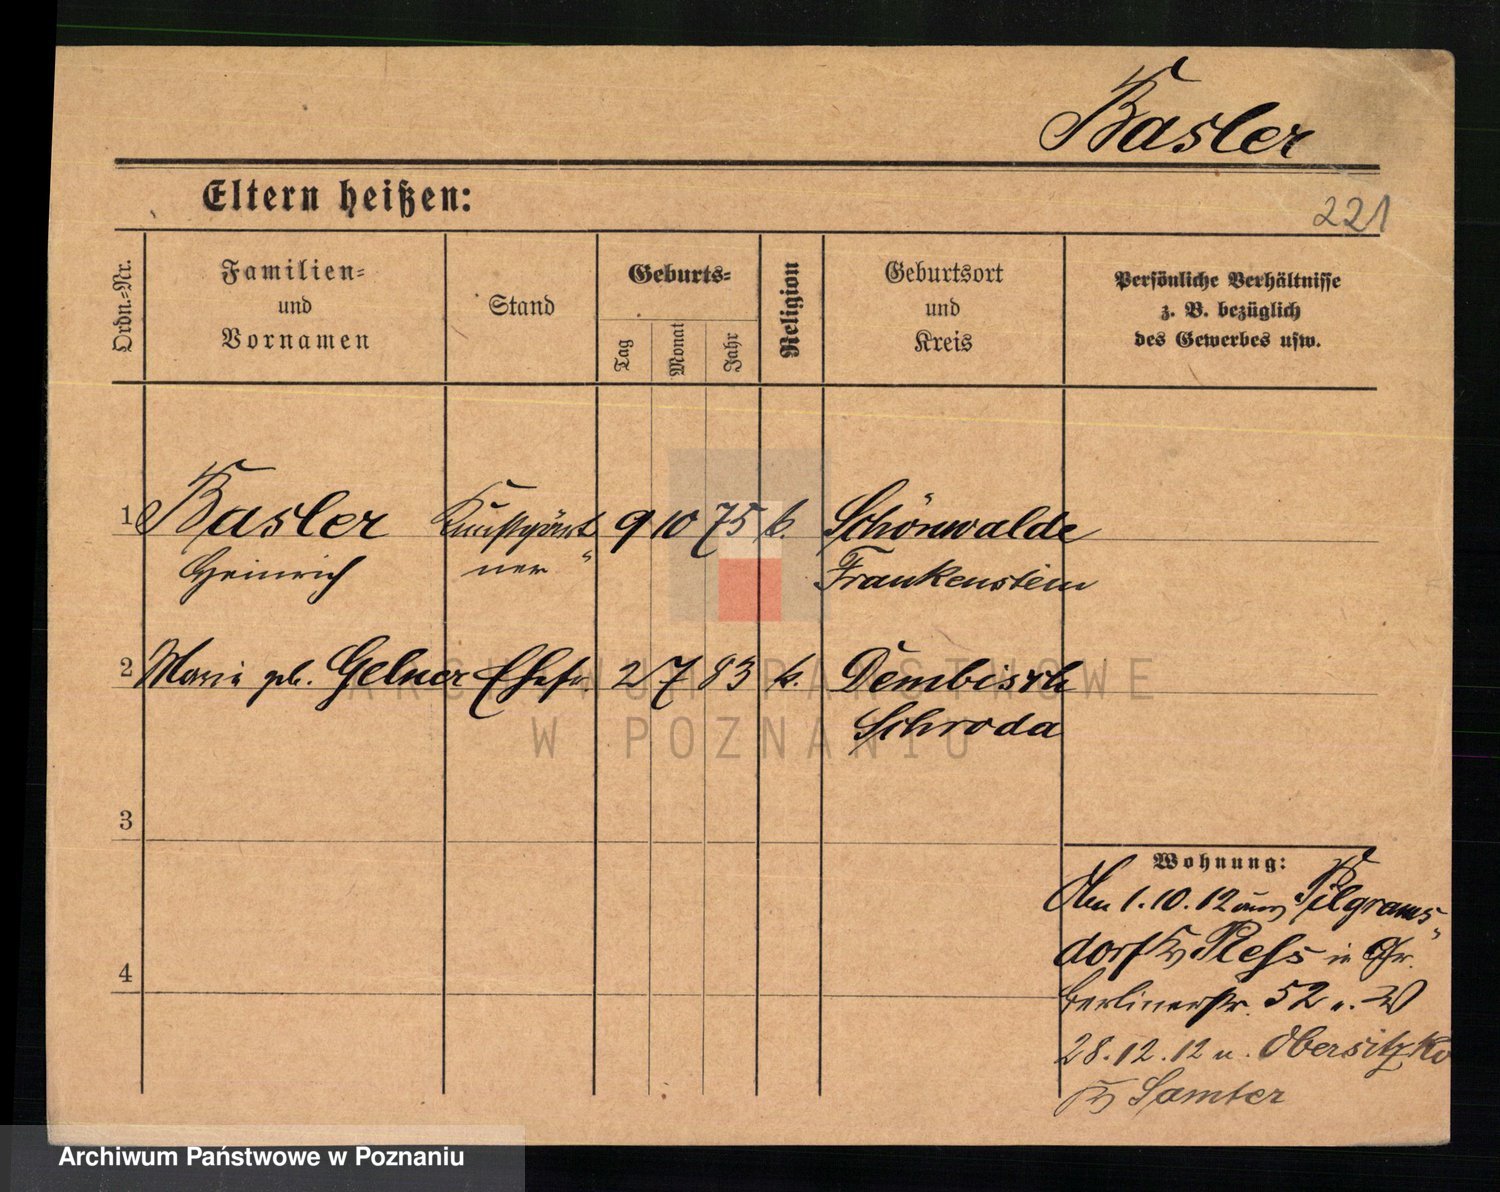 Basler
Eltern heißen:
221
Ordn.-Nr.
Familien-
und
Vornamen
Stand
Geburts-
Tag
Monat
Jahr
Religion
Geburtsort
und
Kreis
Persönliche Verhältnisse
z. B. bezüglich
des Gewerbes usw.
1 Basler Kunstgärt 9 10 75 k. Schönwalde
Heinrich ner Frankenstein
2 Maria geb. Gelner Ehefr. 2 7 83 k. Dembisch
Schroda
3
4
Wohnung:
1.10.12 aus Pilgrams
dorf Kr Pless in Gr.
Berlinerstr. 52 u. W
28.12.12 n. Obersitzko
Kr Samter
ARCHIWUM PAŃSTWOWE
W POZNANIU
Archiwum Państwowe w Poznaniu